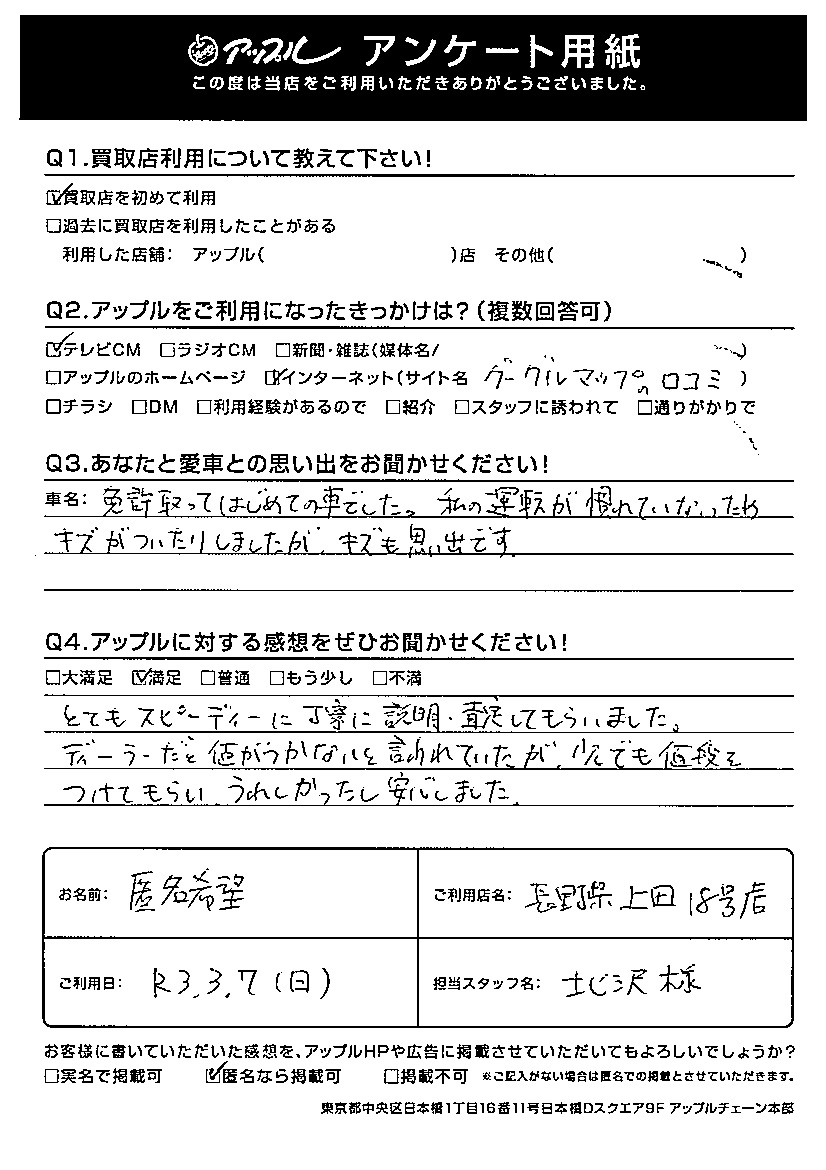 アップル アンケート用紙
この度は当店をご利用いただきありがとうございました。
Q1.買取店利用について教えて下さい!
☑買取店を初めて利用
□過去に買取店を利用したことがある
利用した店舗: アップル( )店 その他( )
Q2.アップルをご利用になったきっかけは?(複数回答可)
☑テレビCM □ラジオCM □新聞・雑誌(媒体名/ )
□アップルのホームページ ☑インターネット(サイト名 グーグルマップの口コミ )
□チラシ □DM □利用経験があるので □紹介 □スタッフに誘われて □通りがかりで
Q3.あなたと愛車との思い出をお聞かせください!
車名: 免許取ってはじめての車でした。私の運転が慣れていなったため
キズがついたりしましたが、キズも思い出です。
Q4.アップルに対する感想をぜひお聞かせください!
□大満足 ☑満足 □普通 □もう少し □不満
とてもスピーディーに丁寧に説明・査定してもらいました。
ディーラーだと値がつかないと言われていたが、少しでも値段を
つけてもらい、うれしかったし安心しました。
お名前: 匿名希望
ご利用店名: 長野県上田18号店
ご利用日: R3.3.7(日)
担当スタッフ名: 北沢様
お客様に書いていただいた感想を、アップルHPや広告に掲載させていただいてもよろしいでしょうか?
□実名で掲載可 ☑匿名なら掲載可 □掲載不可 ※ご記入がない場合は匿名での掲載とさせていただきます。
東京都中央区日本橋1丁目16番11号日本橋Dスクエア9F アップルチェーン本部